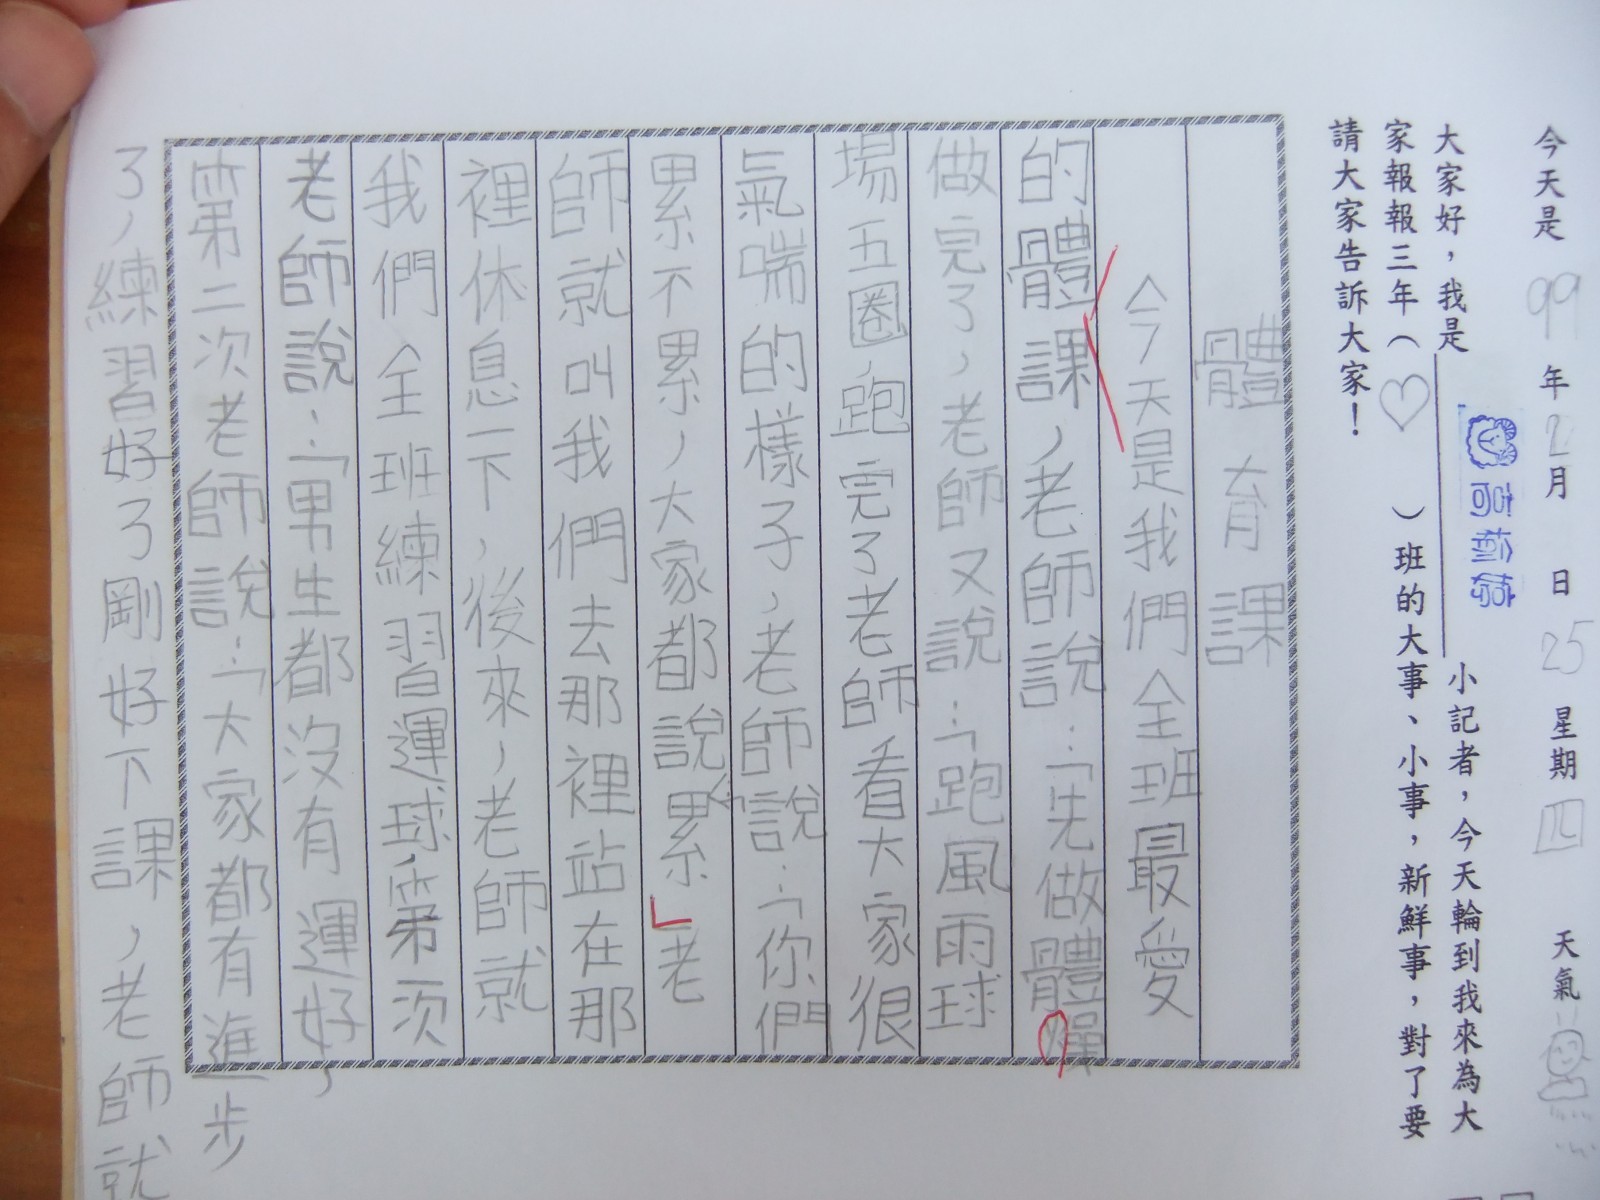 今天是99年2月 日25星期四 天氣
大家好，我是 小記者，今天輪到我來為大
家報報三年（♡）班的大事、小事，新鮮事，對了要
請大家告訴大家！
體育課
今天是我們全班最愛
的體課，老師說：「先做體操
做完了，老師又說：「跑風雨球
場五圈，跑完了老師看大家很
氣喘的樣子，老師說：「你們
累不累，大家都說累」老
師就叫我們去那裡站在那
裡休息一下，後來，老師就
我們全班練習運球，第一次
老師說：「男生都沒有運好，
第二次老師說：「大家都有進步
了，練習好了剛好下課，老師就